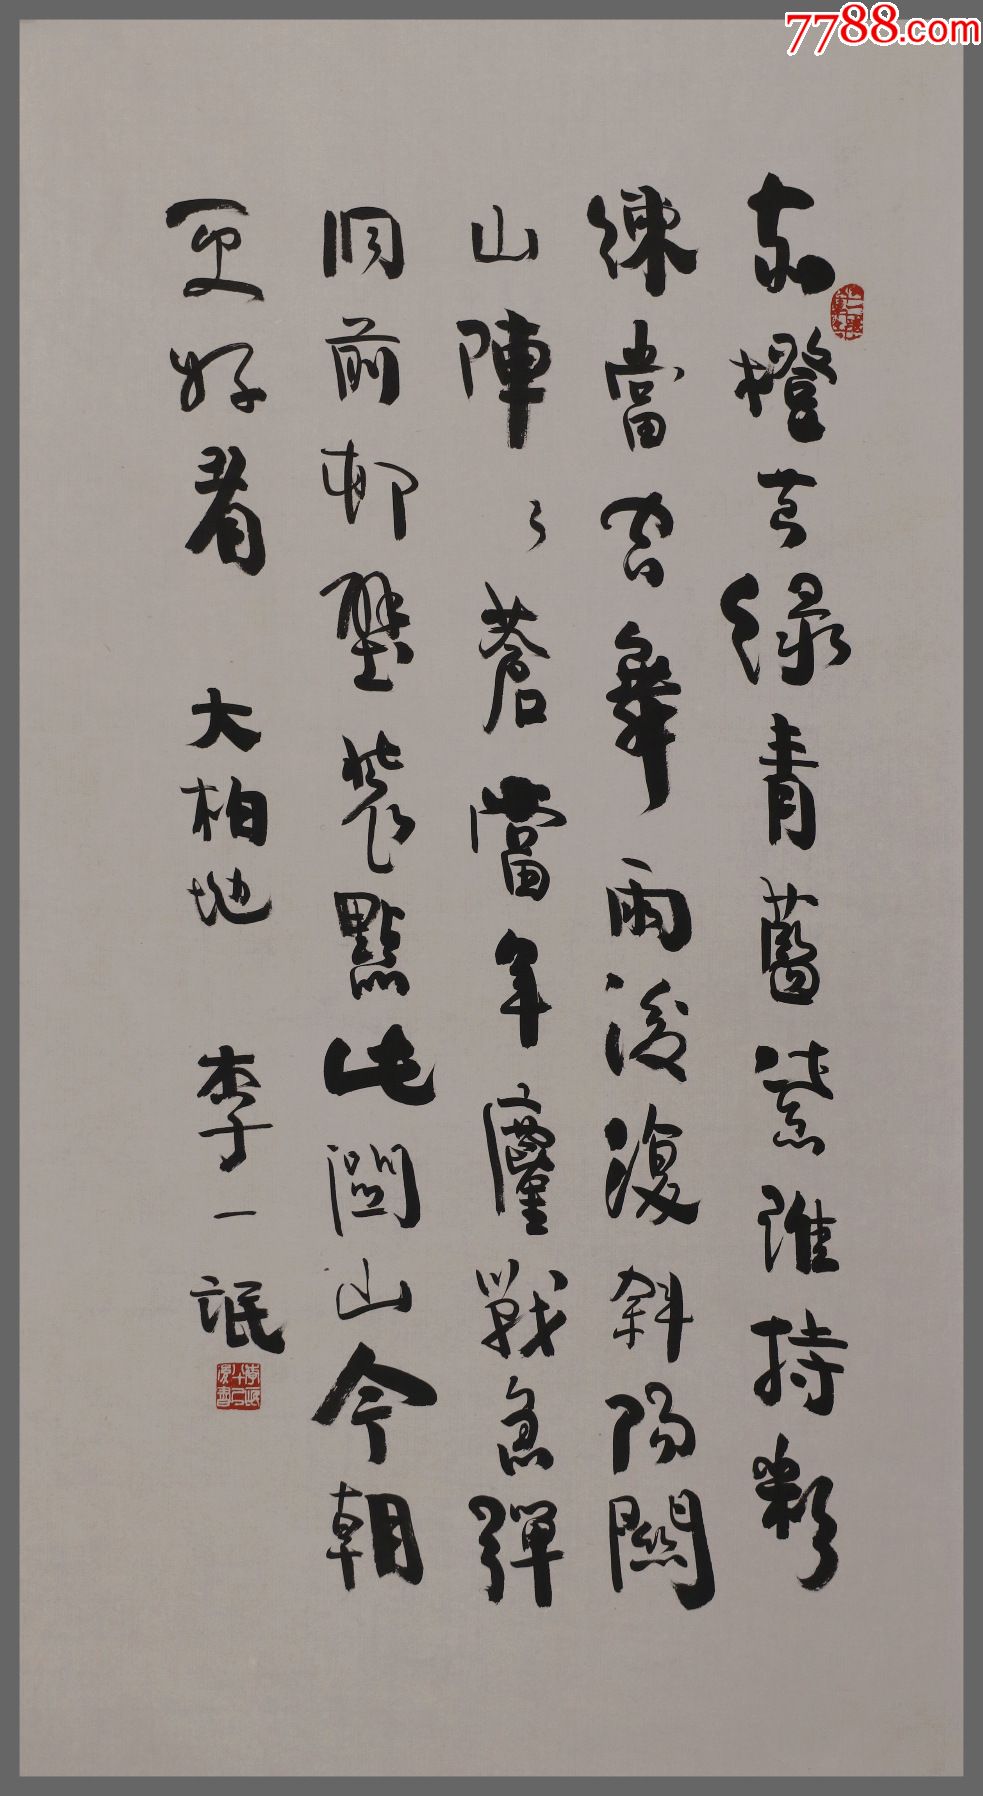 7788.com
赤橙黃绿青藍紫誰持彩
練當空舞雨後復斜陽關
山陣々蒼當年鏖戰急彈
洞前邨壁裝點此關山今朝
更好看 大柏地 李一氓